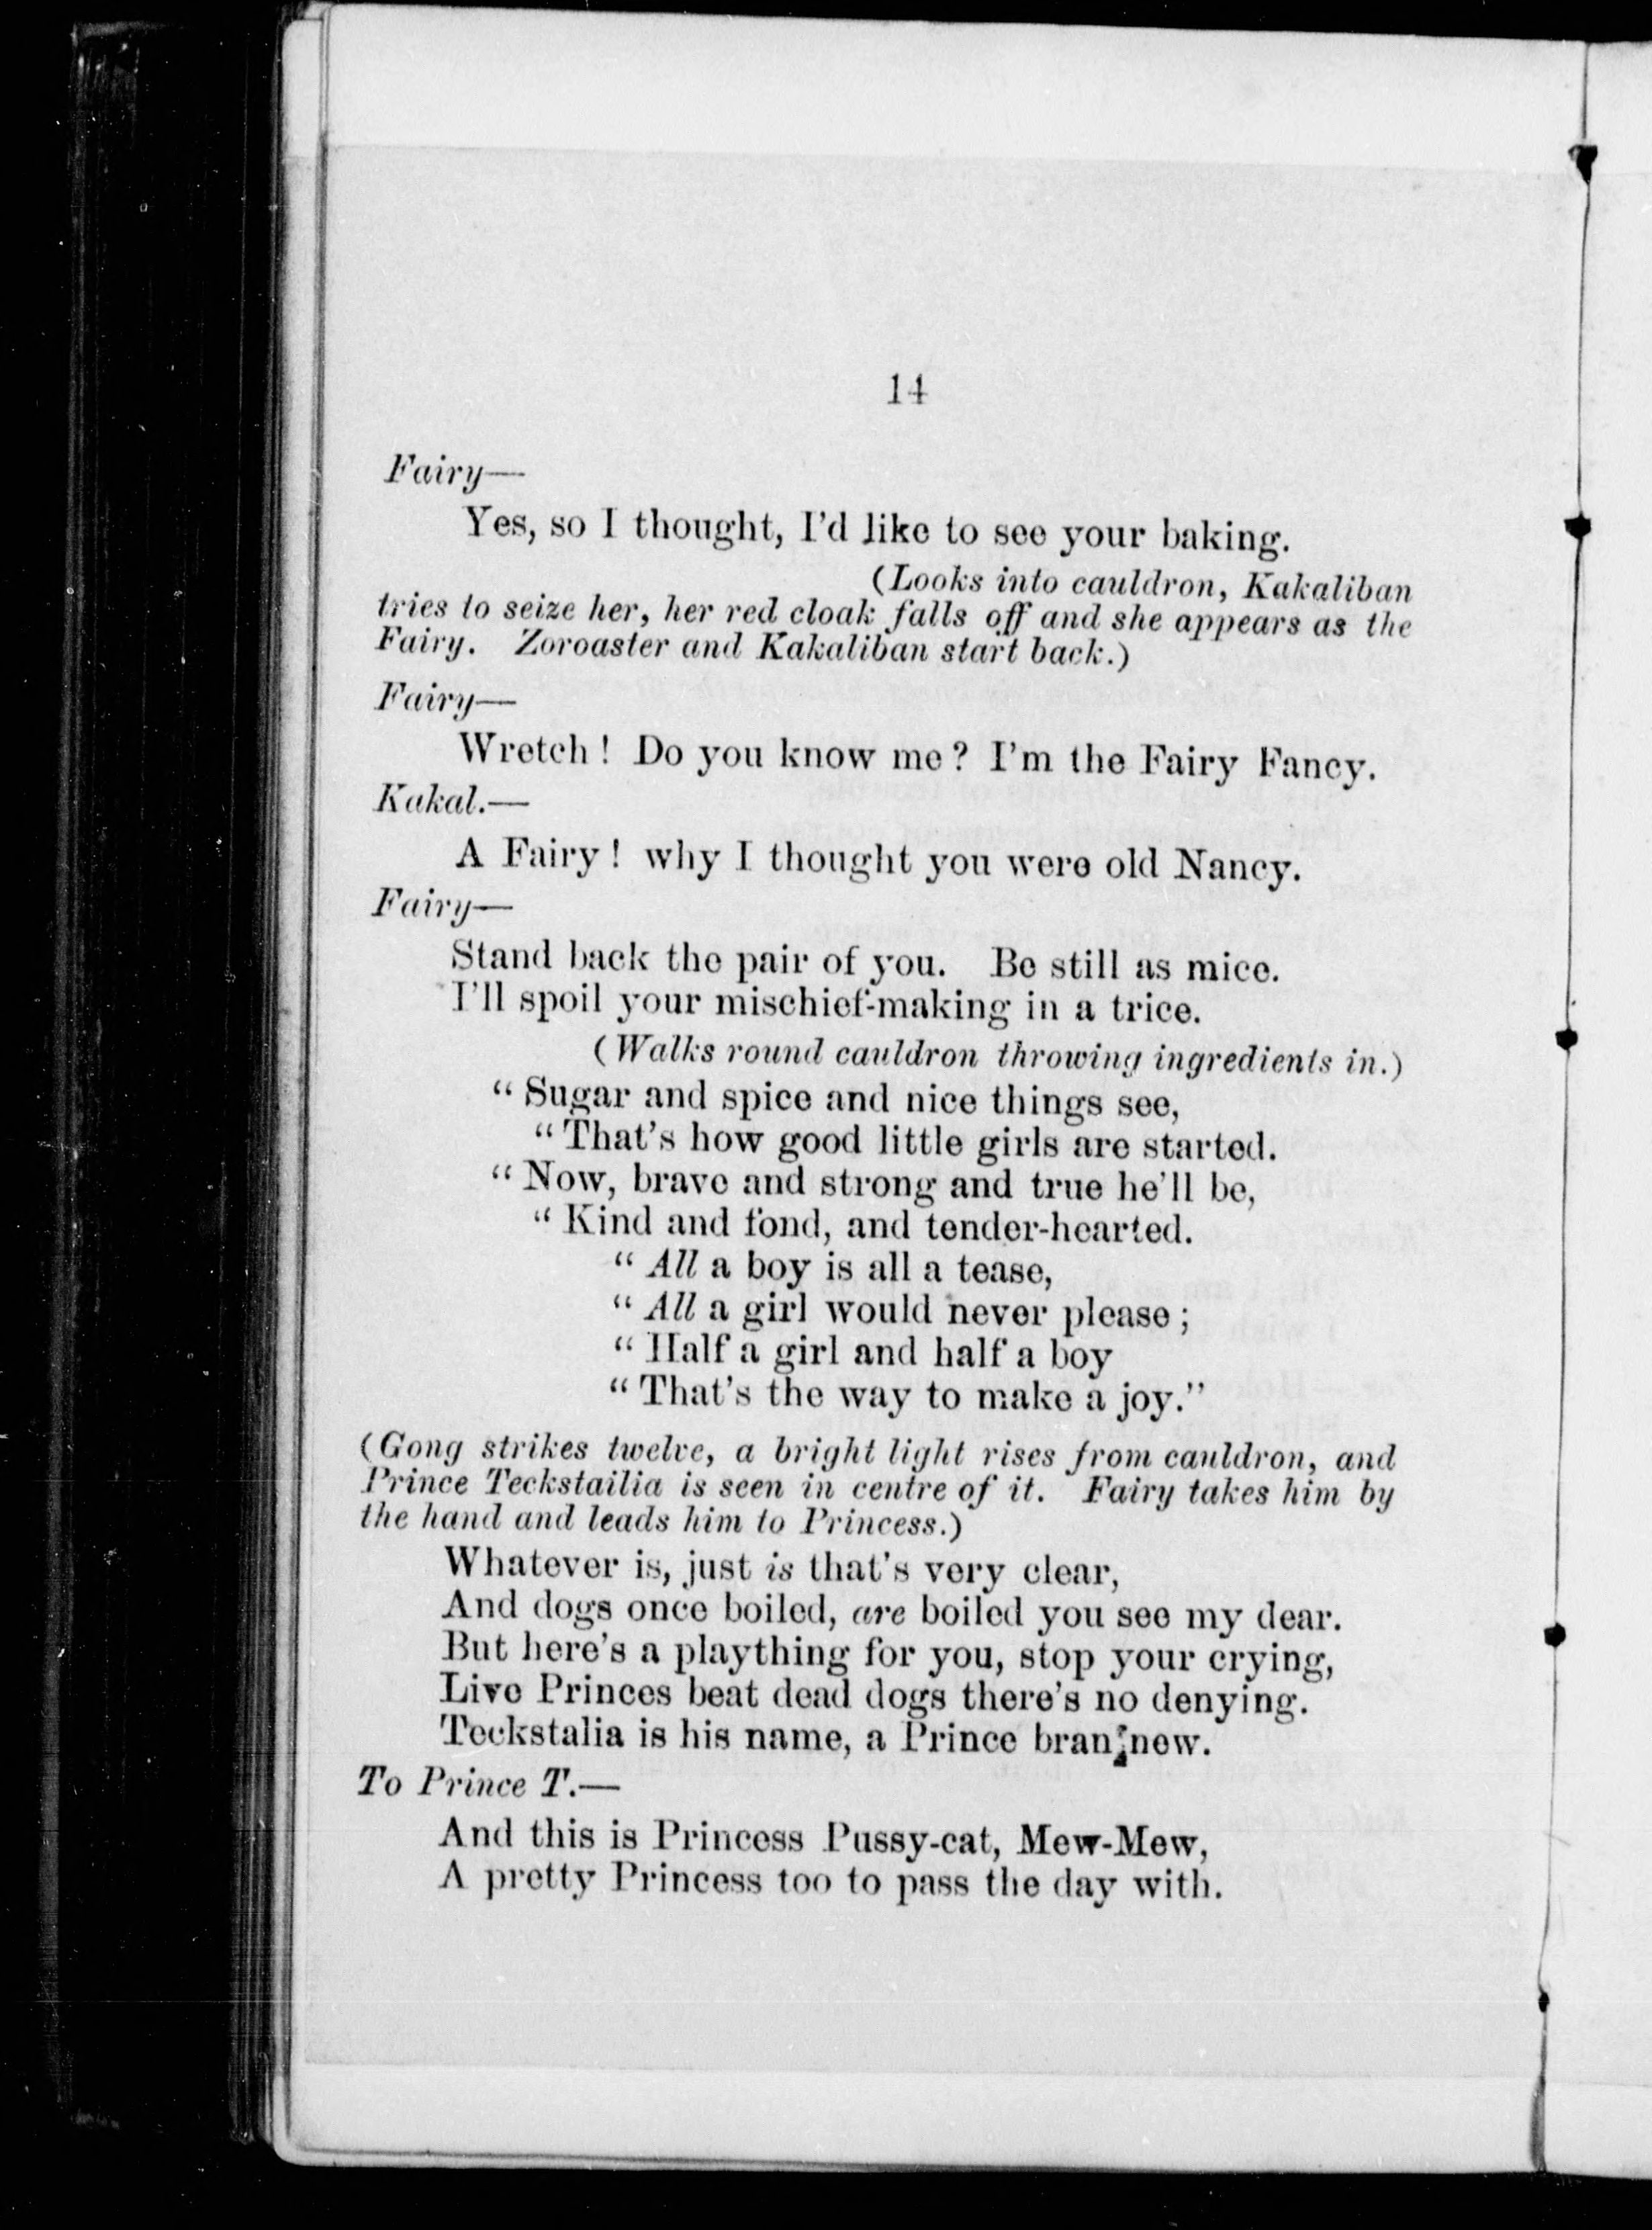 14
Fairy—
Yes, so I thought, I'd like to see your baking.
(Looks into cauldron, Kakaliban
tries to seize her, her red cloak falls off and she appears as the
Fairy. Zoroaster and Kakaliban start back.)
Fairy—
Wretch! Do you know me? I'm the Fairy Fancy.
Kakal.—
A Fairy! why I thought you were old Nancy.
Fairy—
Stand back the pair of you. Be still as mice.
I'll spoil your mischief-making in a trice.
(Walks round cauldron throwing ingredients in.)
"Sugar and spice and nice things see,
"That's how good little girls are started.
"Now, brave and strong and true he'll be,
"Kind and fond, and tender-hearted.
"All a boy is all a tease,
"All a girl would never please;
"Half a girl and half a boy
"That's the way to make a joy."
(Gong strikes twelve, a bright light rises from cauldron, and
Prince Teckstailia is seen in centre of it. Fairy takes him by
the hand and leads him to Princess.)
Whatever is, just is that's very clear,
And dogs once boiled, are boiled you see my dear.
But here's a plaything for you, stop your crying,
Live Princes beat dead dogs there's no denying.
Teckstalia is his name, a Prince bran new.
To Prince T.—
And this is Princess Pussy-cat, Mew-Mew,
A pretty Princess too to pass the day with.